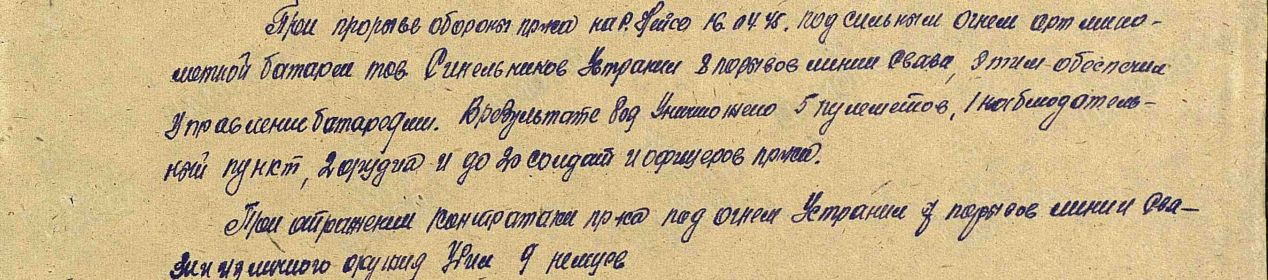 При прорыве обороны пр-ка на р. Нейсе 16.04.45. под сильным огнем арт мино-
метной батареи тов Синельников Устранил 8 порывов линии связи, этим обеспечил
управление батареями. В результате было Уничтожено 5 пулеметов, 1 наблюдатель-
ный пункт, 2 орудия и до 20 солдат и офицеров пр-ка.
При отражении контратаки пр-ка под огнем Устранил 7 порывов линии свя-
зи и из личного оружия Убил 9 немцев